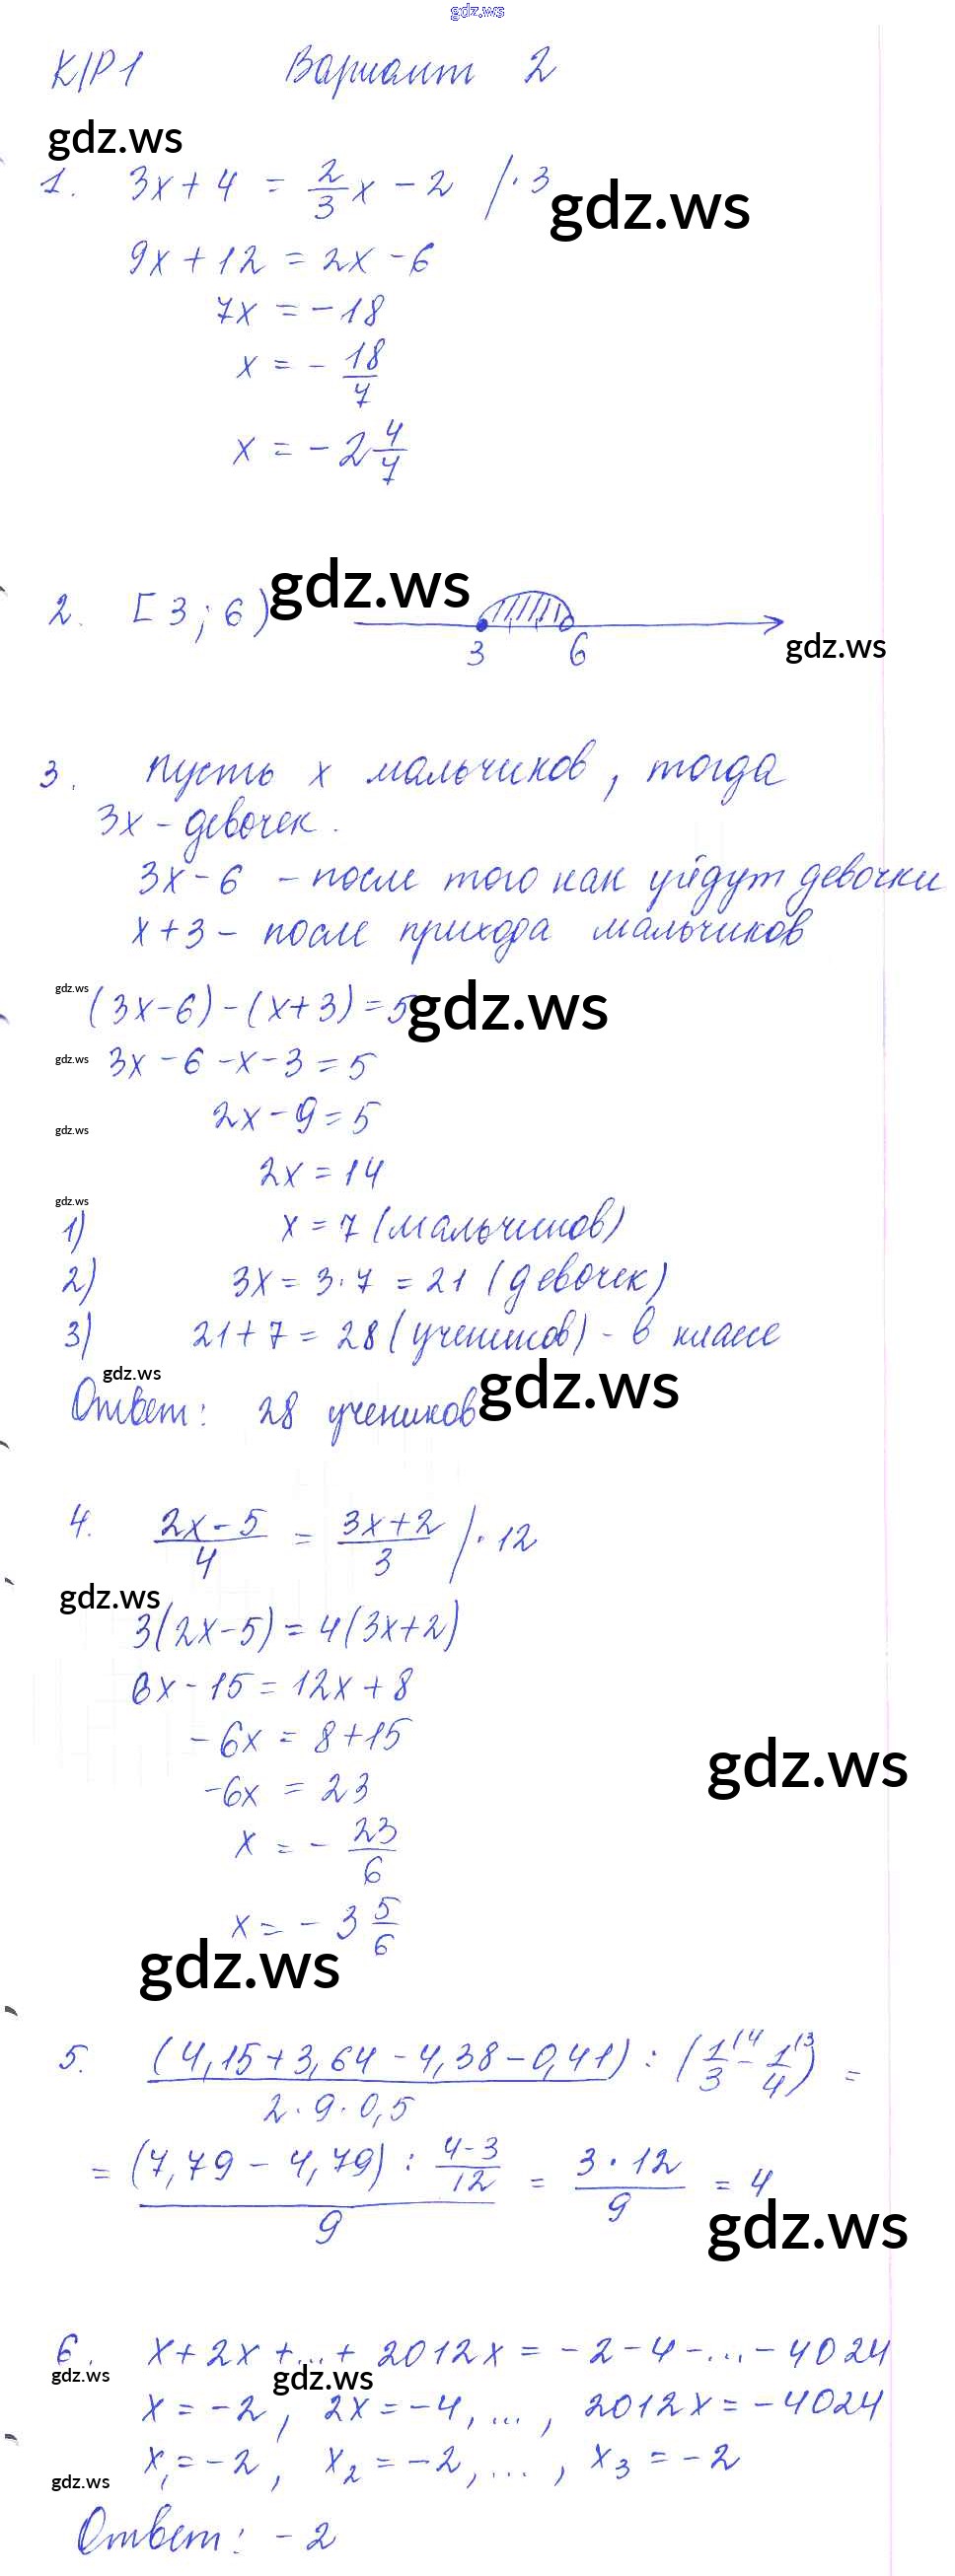 gdz.ws
К/Р1 Вариант 2
gdz.ws
1. 3x + 4 = 2/3 x - 2 / · 3
gdz.ws
9x + 12 = 2x - 6
7x = - 18
x = - 18/7
x = - 2 4/7
2. [3; 6) gdz.ws
3 6
gdz.ws
3. Пусть x мальчиков, тогда
3x - девочек.
3x - 6 - после того как уйдут девочки
x + 3 - после прихода мальчиков
gdz.ws (3x - 6) - (x + 3) = 5 gdz.ws
gdz.ws 3x - 6 - x - 3 = 5
gdz.ws 2x - 9 = 5
2x = 14
gdz.ws
1) x = 7 (мальчиков)
2) 3x = 3 · 7 = 21 (девочек)
3) 21 + 7 = 28 (учеников) - в классе
gdz.ws
Ответ: 28 учеников gdz.ws
4. (2x - 5)/4 = (3x + 2)/3 / · 12
gdz.ws
3(2x - 5) = 4(3x + 2)
6x - 15 = 12x + 8
-6x = 8 + 15
gdz.ws
-6x = 23
x = - 23/6
x = - 3 5/6
gdz.ws
5. (4,15 + 3,64 - 4,38 - 0,41) : (1/3 \4 - 1/4 \3) =
2 · 9 · 0,5
= (7,79 - 4,79) : (4-3)/12 / 9 = 3 · 12 / 9 = 4
gdz.ws
6. x + 2x + ... + 2012x = - 2 - 4 - ... - 4024
gdz.ws gdz.ws
x = - 2, 2x = - 4, ..., 2012x = - 4024
x₁ = - 2, x₂ = - 2, ..., x₃ = - 2
gdz.ws
Ответ: - 2